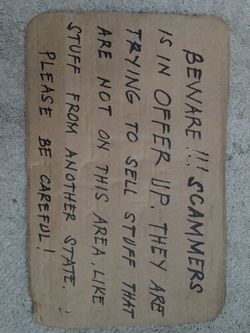 BEWARE!!! SCAMMERS
IS IN OFFER UP. THEY ARE
TRYING TO SELL STUFF THAT
ARE NOT ON THIS AREA. LIKE
STUFF FROM ANOTHER STATE..
PLEASE BE CAREFUL!